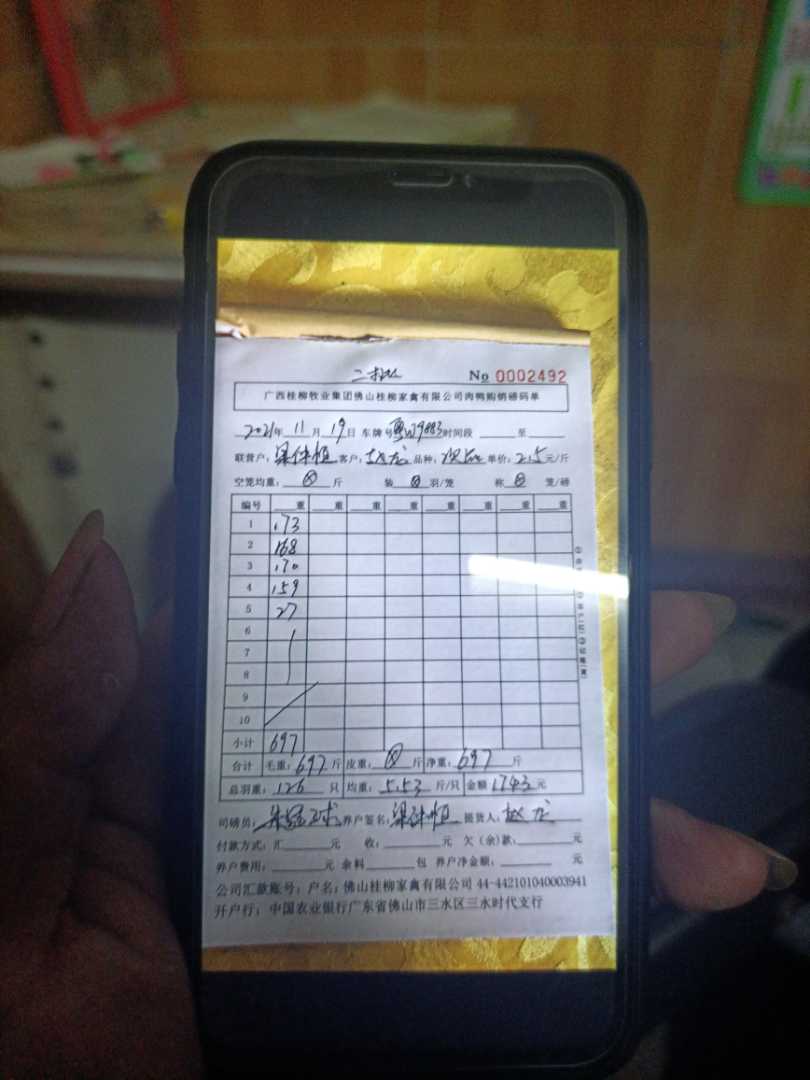 No 0002492
广西桂柳牧业集团佛山桂柳家禽有限公司肉鸭购销磅码单
2021年 11月 19日 车牌号 时间段 至
联营户: 梁体恒 客户: 赵龙 品种: 单价: 2.5元/斤
空笼均重: 斤 装 羽/笼 称 笼/磅
编号 重 重 重 重 重 重 重 重
1 173
2 168
3 170
4 159
5 27
6
7
8
9
10
小计 697
合计 毛重: 697斤 皮重: 斤 净重: 697斤
总羽重: 126只 均重: 5.53斤/只 金额 1743元
司磅员: 养户签名: 梁体恒 提货人: 赵龙
付款方式: 汇 元 收: 元 欠(余)款: 元
养户费用: 元 余料 包 养户净金额: 元
公司汇款账号: 户名: 佛山桂柳家禽有限公司 44-442101040003941
开户行: 中国农业银行广东省佛山市三水区三水时代支行